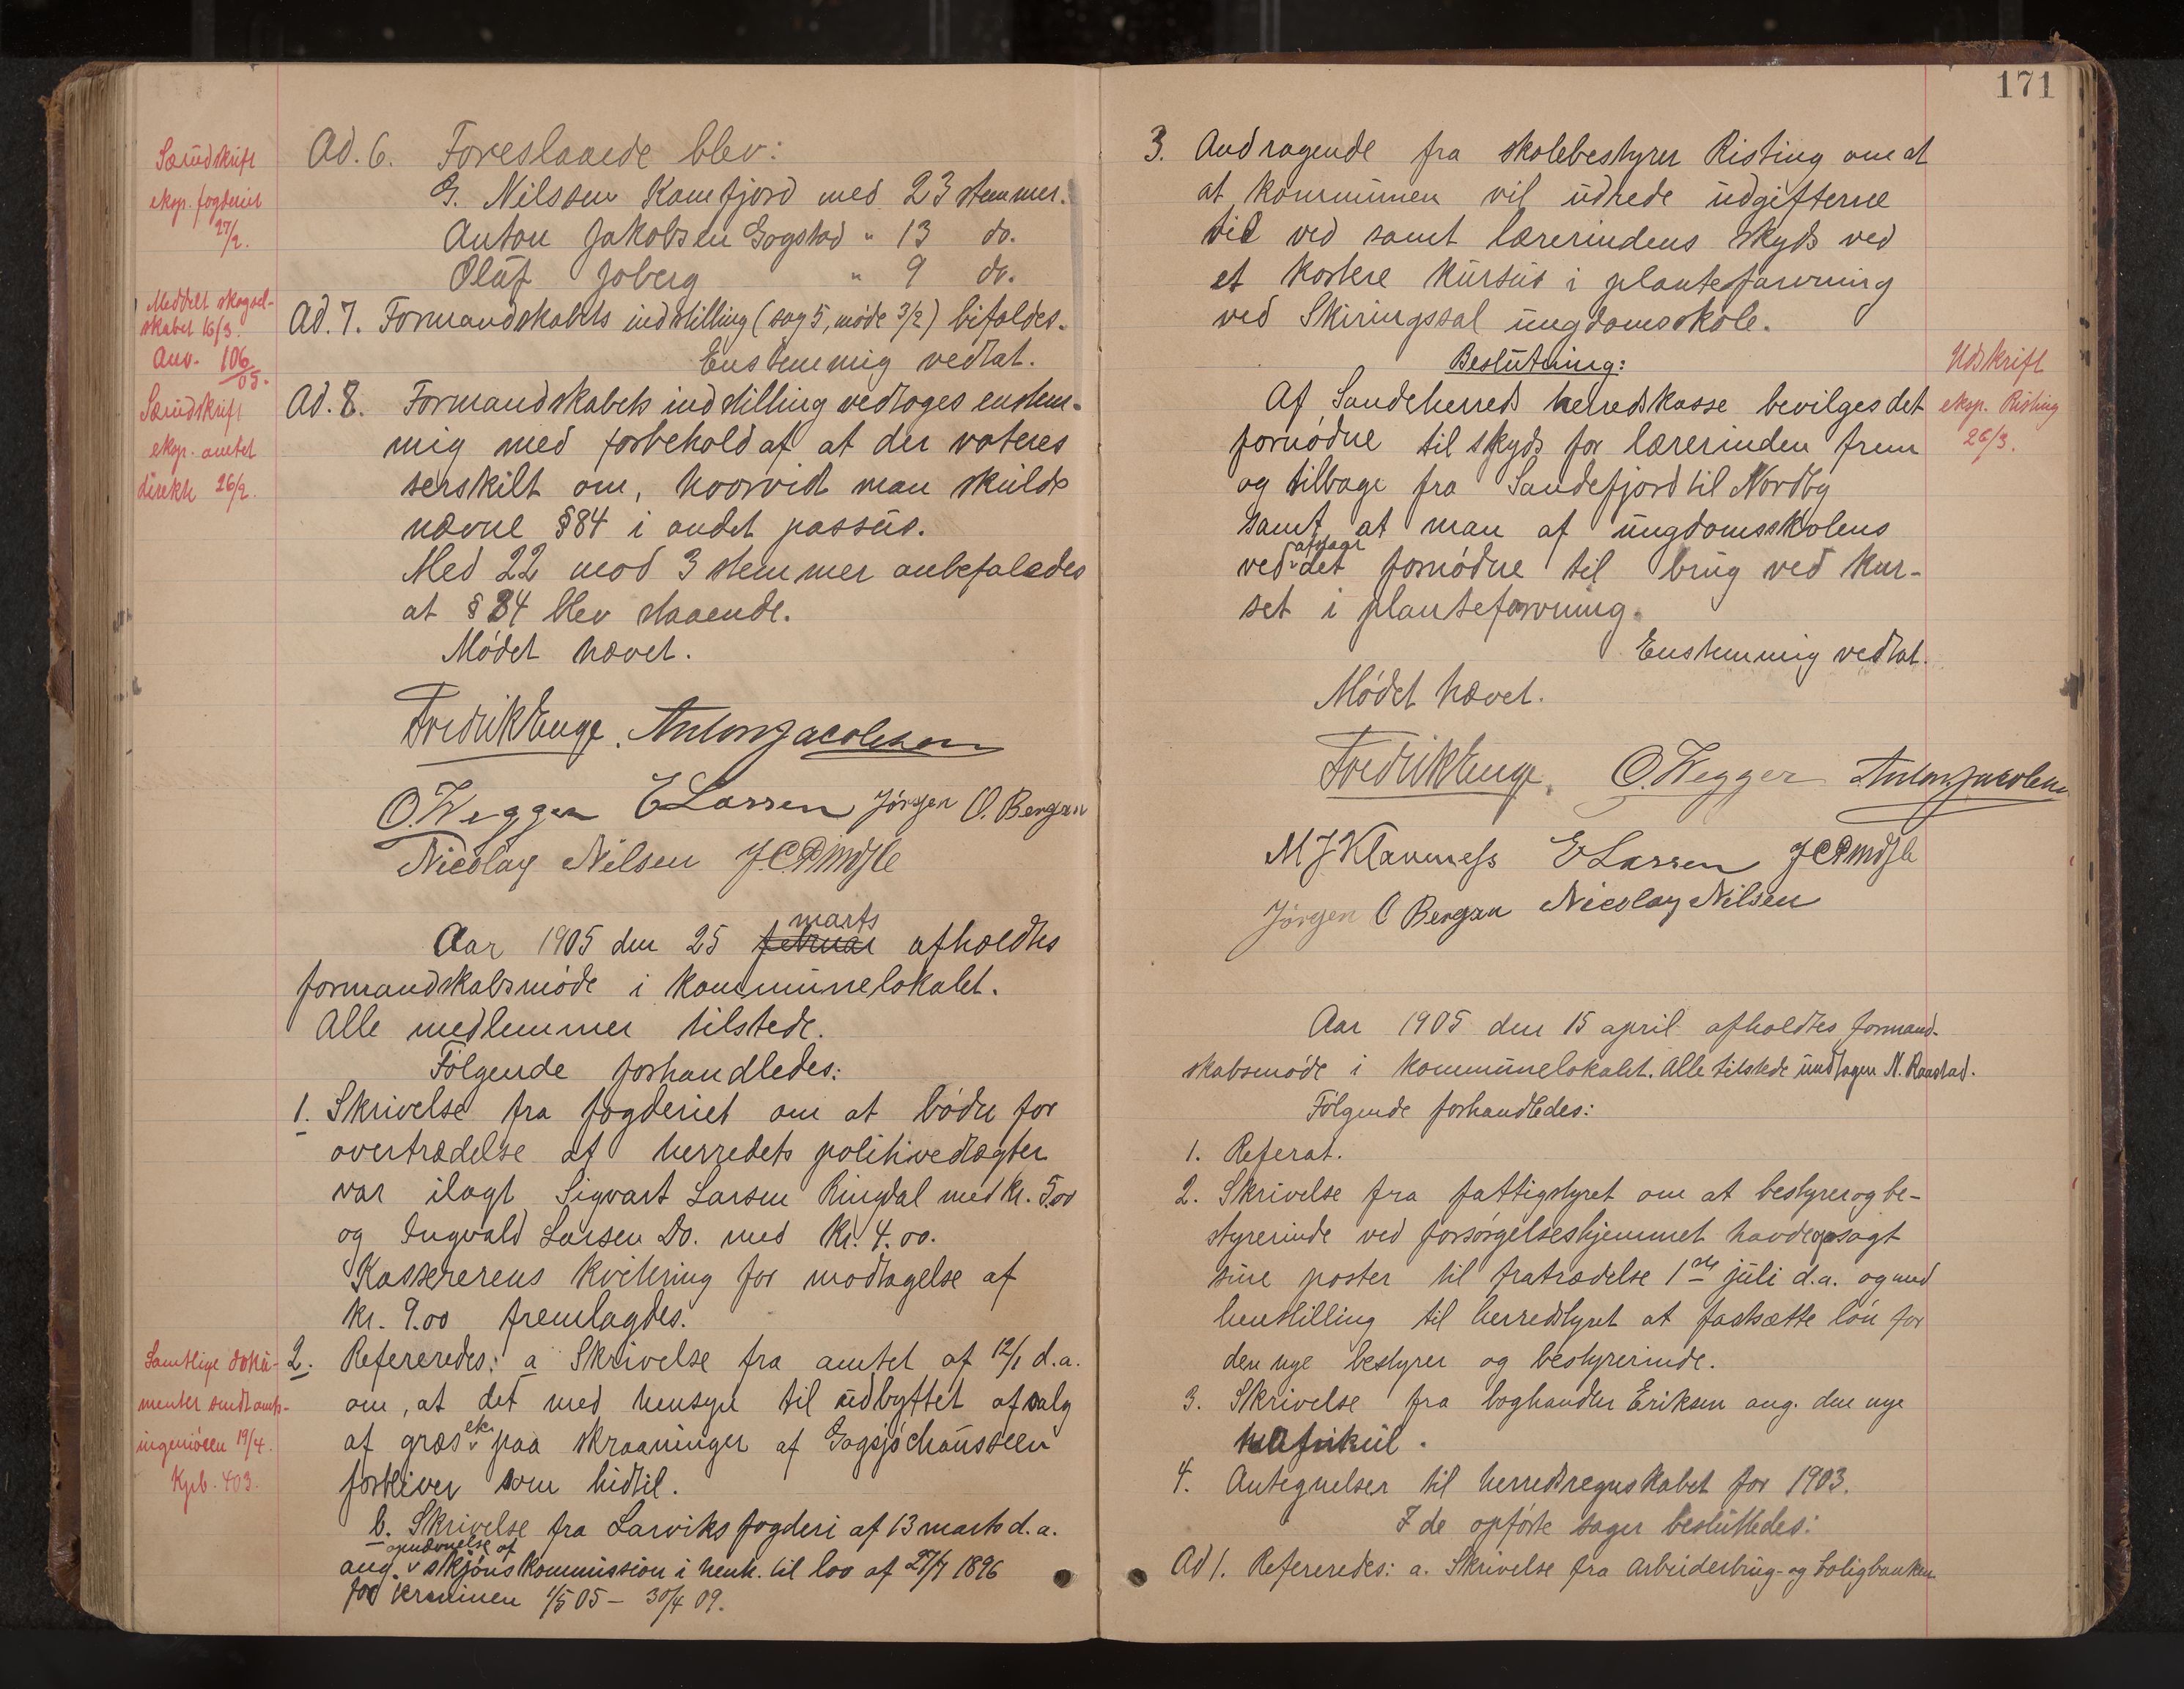 Særudskrift
eksp. fogderiet
27/2.
Meddelt skogsel-
skabet 16/3.
Anv. 106/05.
Særudskrift
eksp. amtet
direkte 26/2.
Ad. 6. Foreslaaede blev:
G. Nilssen Kamfjord med 23 stemmer.
Anton Jakobsen Gogstad " 13 do.
Oluf Joberg " 9 do.
Ad. 7. Formandskabets indstilling (sag 5, møde 3/2) bifaldes.
Enstemmig vedtat.
Ad. 8. Formandskabets indstilling vedtoges enstem-
mig med forbehold af at der voteres
serskilt om, hvorvidt man skulde
nævne § 84 i andet passus.
Med 22 mod 3 stemmer anbefaledes
at § 84 blev staaende.
Mødet hævet.
Fredrik Enge. Anton Jacobsen
O. Wegger E Larsen Jørgen O. Bergan
Nicolay Nilsen J. C. Pindsle
Aar 1905 den 25 februar marts afholdtes
formandskabsmøde i kommunelokalet.
Alle medlemmer tilstede.
Følgende forhandledes:
1. Skrivelse fra fogderiet om at bøder for
overtrædelse af herredets politivedtægter
var ilagt Sigvart Larsen Ringdal med kr. 5.00
og Ingvald Larsen Do. med kr. 4.00.
Kassererens kvittering for modtagelse af
kr. 9.00 fremlagdes.
Samtlige doku-
menter sendt amts-
ingeniøren 19/4.
Kpb. 403.
2. Refereredes: a Skrivelse fra amtet af 12/1 d.a.
om, at det med hensyn til udbyttet af salg
af græs etc. paa skraaninger af Gogsjøchausseen
forbliver som hidtil.
b. Skrivelse fra Larviks fogderi af 13 marts d.a.
ang. opnævnelse af skjønskommission i henh. til lov af 27/7 1896
for terminen 1/5 05 – 30/4 09.
171
3. Andragende fra skolebestyrer Risting om at
at kommunen vil udrede udgifterne
til ved samt lærerindens skyds ved
et kortere kursus i plantefarvning
ved Skiringssal ungdomsskole.
Beslutning:
Af Sandeherreds herredskasse bevilges det
fornødne til skyds for lærerinden frem
og tilbage fra Sandefjord til Nordby
samt at man af ungdomsskolens
ved afdage det fornødne til brug ved kur-
set i plantefarvning.
Enstemmig vedtat.
Udskrift
eksp. Risting
26/3.
Mødet hævet.
Fredrik Enge. O. Wegger Anton Jacobsen
M J Klaveness E Larsen J C Pindsle
Jørgen O Bergan Nicolay Nilsen
Aar 1905 den 15 april afholdtes formand-
skabsmøde i kommunelokalet. Alle tilstede undtagen N. Raastad.
Følgende forhandledes:
1. Referat.
2. Skrivelse fra fattigstyret om at bestyrer og be-
styrerinde ved forsørgelseshjemmet havde opsagt
sine poster til fratrædelse 1ste juli d.a. og med
henstilling til herredstyret at fastsætte løn for
den nye bestyrer og bestyrerinde.
3. Skrivelse fra boghandler Eriksen ang. den nye
matrikul.
4. Antegnelser til herredsregnskabet for 1903.
I de opførte sager besluttedes:
Ad 1. Refereredes: a. Skrivelse fra Arbeiderbrug- og boligbanken